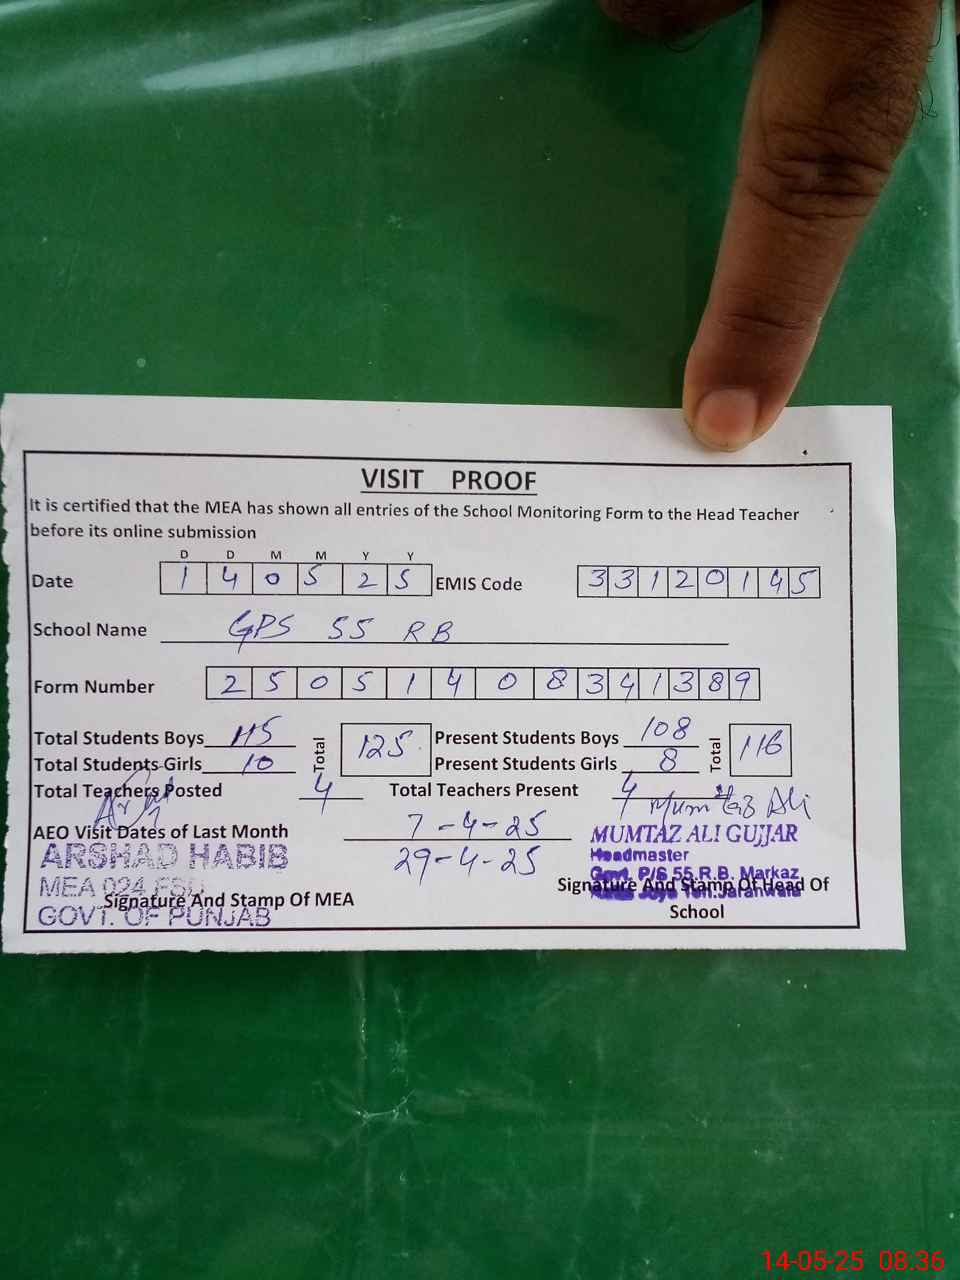 VISIT PROOF
It is certified that the MEA has shown all entries of the School Monitoring Form to the Head Teacher
before its online submission
D D M M Y Y
Date 1 4 0 5 2 5 EMIS Code 3 3 1 2 0 1 4 5
School Name GPS 55 RB
Form Number 2 5 0 5 1 4 0 8 3 4 1 3 8 9
Total Students Boys 115 Total 125 Present Students Boys 108 Total 116
Total Students Girls 10 Present Students Girls 8
Total Teachers Posted 4 Total Teachers Present 4
Mumtaz Ali
AEO Visit Dates of Last Month 7-4-25
29-4-25
ARSHAD HABIB
MEA 024 FSD
GOVT. OF PUNJAB
Signature And Stamp Of MEA
MUMTAZ ALI GUJJAR
Headmaster
Govt. P/S 55 R.B. Markaz
Joya Teh. Jaranwala
Signature And Stamp Of Head Of
School
14-05-25 08.36